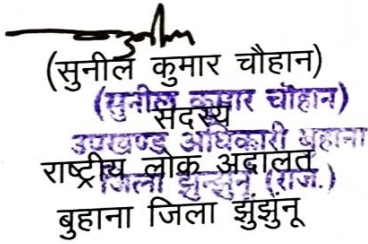 (सुनील कुमार चौहान)
(सुनील कुमार चौहान)
सदस्य
उपखण्ड अधिकारी बुहाना
राष्ट्रीय लोक अदालत
जिला झुन्झुनू (राज.)
बुहाना जिला झुंझुंनू